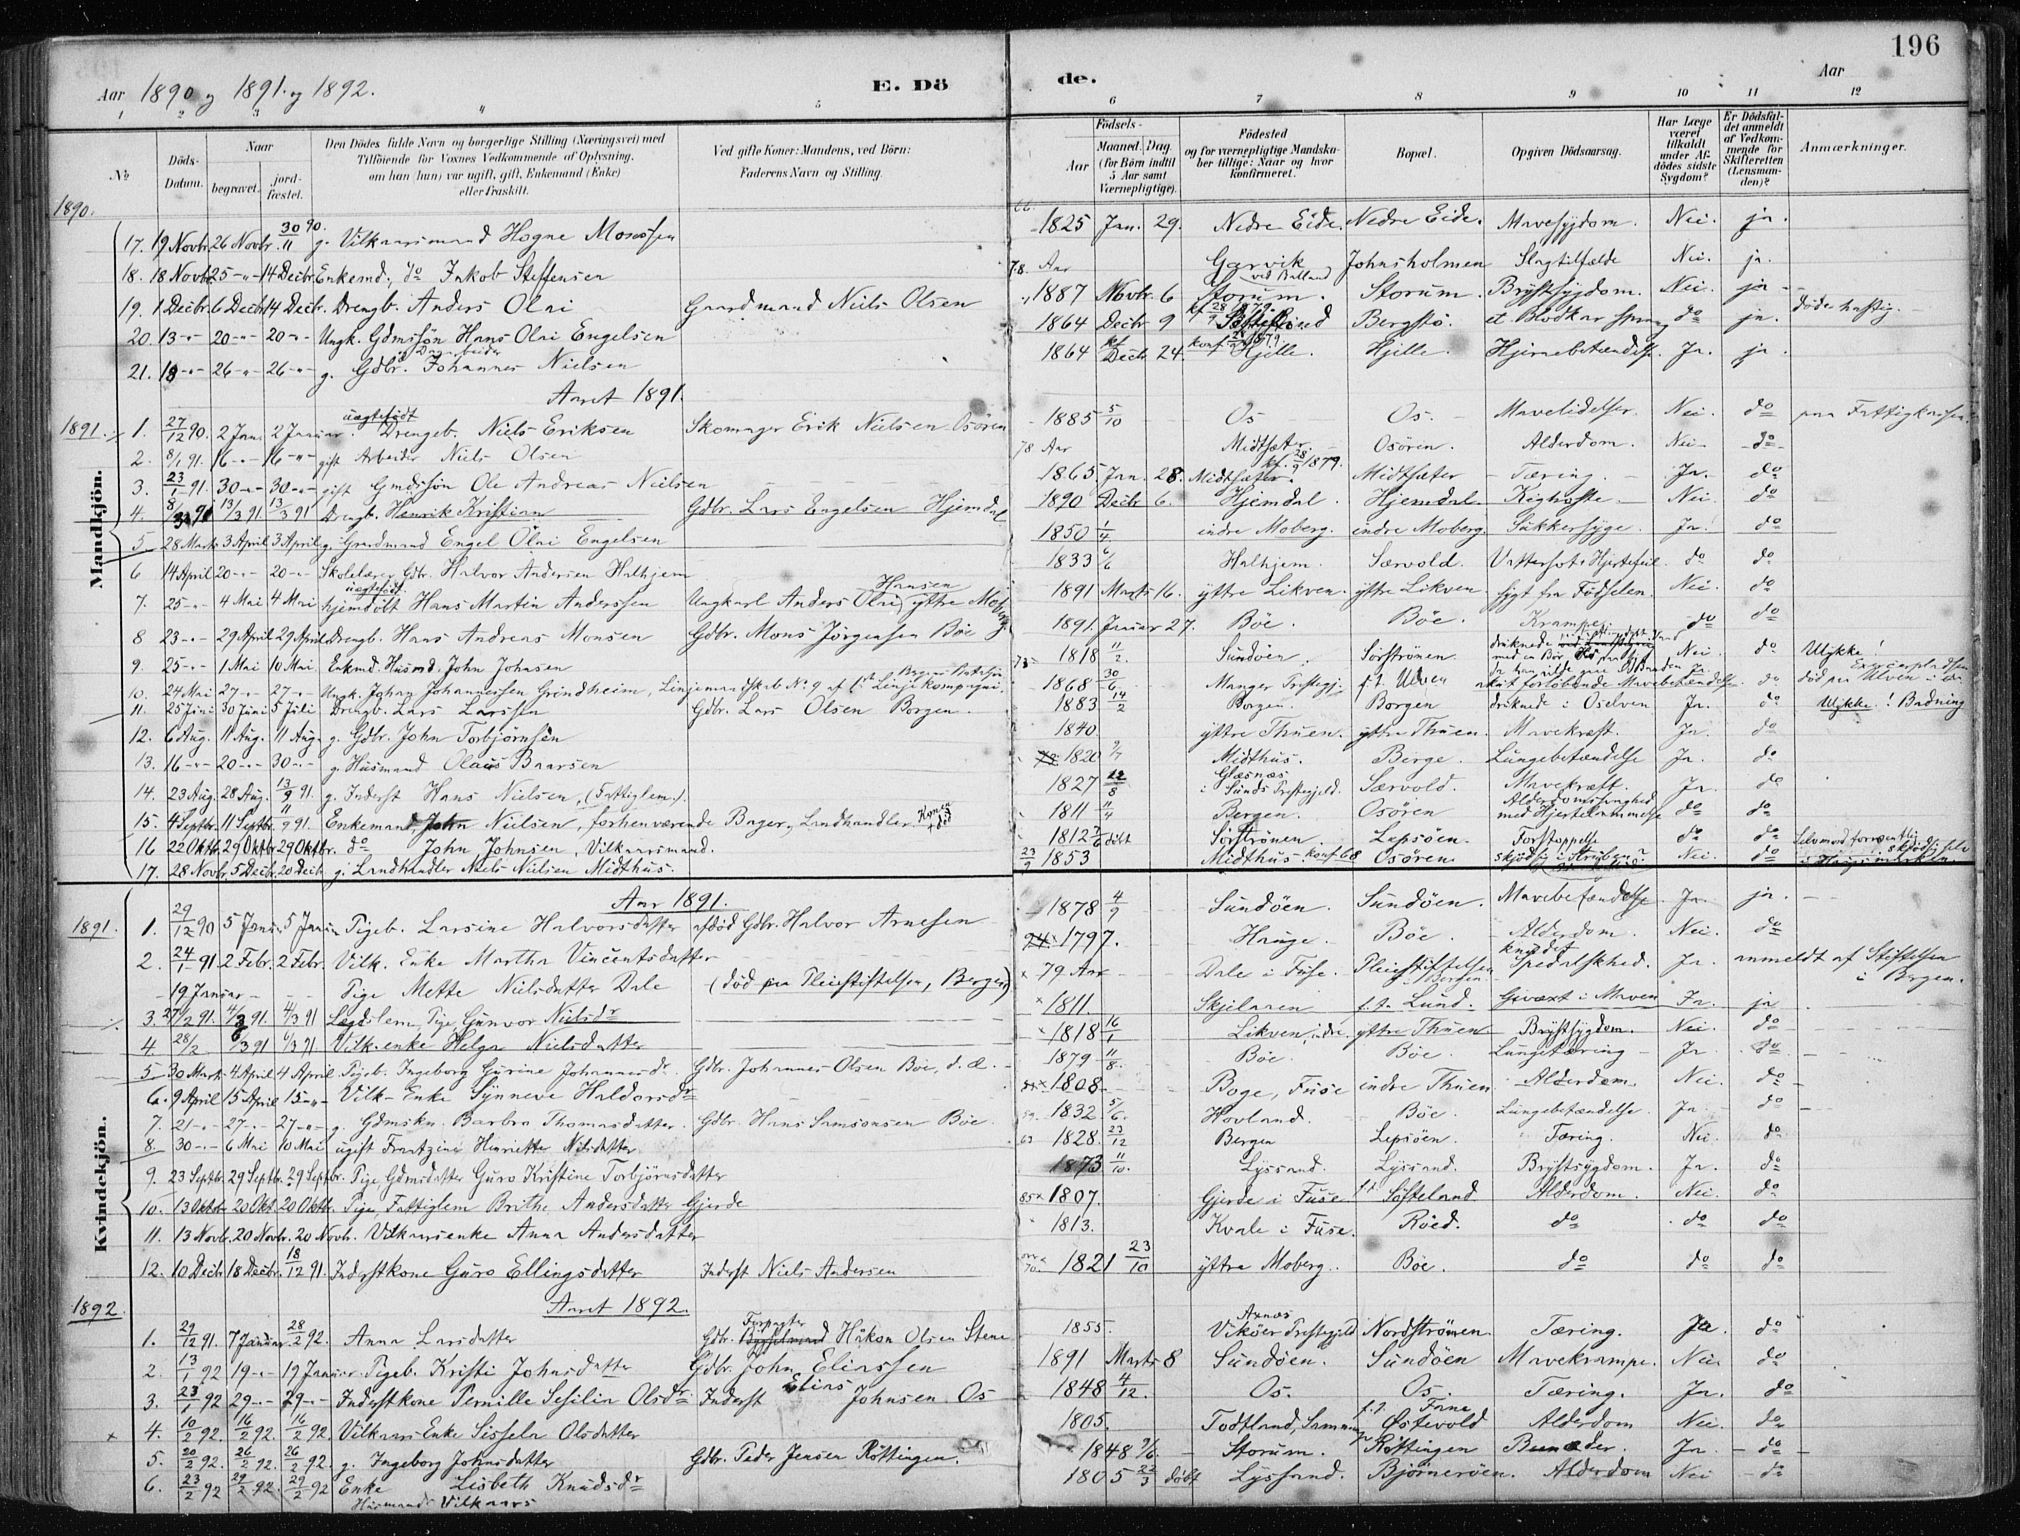 196
Aar 1890 og 1891 og 1892. E. Dö de. Aar
1 2 3 4 5 6 7 8 9 10 11 12
No
Döds-Datum.
Naar
begravet.
jord-fæstet.
Den Dödes fulde Navn og borgerlige Stilling (Næringsvei) med
Tilföiende for Voxnes Vedkommende af Oplysning,
om han (hun) var ugift, gift, Enkemand (Enke)
eller fraskilt.
Ved gifte Koner: Mandens, ved Börn:
Faderens Navn og Stilling.
Födsels-
Aar
Maaned. Dag.
(for Börn indtil
5 Aar samt
Værnepligtige).
Födested
og for værnepligtige Mandska-
ber tillige: Naar og hvor
konfirmeret.
Bopæl.
Opgiven Dödsaarsag.
Har Læge
været
tilkaldt
under Af-
dödes sidste
Sygdom?
Er Dödsfal-
det anmeldt
af Vedkom-
mende for
Skifteretten
(Lensman-
den)?
Anmærkninger.
1890.
Mandkjön.
17. 19 Novbr. 26 Novbr. 30/11 90. g. Vilkaarsmand Hogne Monssen 1825 Jan. 29. Nedre Eide. Nedre Eide. Mavesygdom. Nei. ja.
18. 18 Novbr. 25 -"- 14 Decbr. Enkemd. do Jakob Steffensen 78 Aar Garvik Johnsholmen Slagtilfælde Nei. ja.
19. 1 Decbr. 6 Decbr. 14 Decbr. Drengb. Anders Olai Gaardmand Niels Olsen 1887 Novbr. 6 Storum. Storum. Brystsygdom. Nei. ja
20. 13 -"- 20 -"- 20 -"- Ungk. Gdmssön Hans Olai Engelsen 1864 Decbr. 9 Bergstö. et Blodkar sprang do ja. döde hastig.
21. 18 -"- 26 -"- 26 -"- g. Gdbr. Johannes Nielsen 1864 Decbr. 24. Hjelle. Hjelle. Hjernebetændelse. Ja. ja
Aaret 1891.
1891. 1. 27/12 90. 2 Jan. 2 Januar. uægtefödt Drengeb. Niels Eriksen Skomager Erik Nielsen Osören 1885 5/10 Os Os. Mavelidelser. Nei. do paa Fattigkassen.
2. 8/1 91. 16 -"- 16 -"- gift Arbeider Niels Olsen 78 Aar Midtsæter Osören. Alderdom. Nei do
3. 23/1 91. 30 -"- 30 -"- gift Gmdssön Ole Andreas Nielsen 1865 Jan. 28. Midtsæter. kf. 28/9 1879. Midtsæter Tæring. Ja. do
4. 13/3 91 13/3 91 Drengb. Henrik Kristian Gdbr. Lars Engelsen Hjemdal 1890 Decbr. 6. Hjemdal Hjemdal Kighoste. Nei. do
5 28 Marts 3 April 3 April g. Gaardmand Engel Olai Engelsen 1850 1/4 indre Moberg. indre Moberg. Sukkersyge. Ja. do
6 14 April 20 -"- 20 -"- Skolelærer Gdbr. Halvor Andersen Halhjem 1833 6/6 Halhjem. Særvold. Vattersot. Hjertefeil. do do
7. 25 -"- 4 Mai 4 Mai uægtefödt hjemdöbt Hans Martin Anderssen Ungkarl Anders Olai Hansen ytre Moberg 1891 Marts 16. yttre Likven. yttre Likven sygt fra Födselen. Nei. do
8 23 -"- 29 April 29 April Drengb. Hans Andreas Monsen Gdbr. Mons Jörgensen Böe 1891. Januar 27. Böe. Böe. Krampe. do do
9. 25 -"- 1 Mai 10 Mai Enkmd. Husmd. John Johnsen 1818 11/2. Sundöen. Sörströnen. Nei. do Ulykke!
10. 24 Mai 27 -"- 27 -"- Ungk. Johan Johannessen Grindheim, Linjemandskab No 9 af 1st Linjekompagni. Bergens Bataljon 1868 30/6. Manger Prestegj. f.t. Ulven akut forlöbende Mavebetændelse do död paa Ulven Exerserpladsen
11. 25 Juni 30 Juni 5 Juli Drengb. Lars Larssen Gdbr. Lars Olsen Borgen. 1883 14/2 Borgen. Borgen druknede i Oselven Ja. do Ulykke! Badning
12. 6 Aug. 11 Aug. 11 Aug. g. Gdbr. John Torbjörnsen 1840. yttre Thuen. yttre Thuen. Mavekræft. Ja. do
13. 16 -"- 20 -"- 30 -"- g. Husmand Olaus Baarsen 1820 Midthus. Berge. Lungebetændelse Ja. do
14. 23 Aug. 28 Aug. 13/9 91. g. Inderst Hans Nielsen, (Fattiglem.) 1827 22/8 i Sunds Prestegjeld. Særvold. Mavekræft. Ja. do
15. 4 Septbr. 11 Septbr. 11/9 91. Enkemand, John Nielsen, forhenværende Bager, Landhandler. 1811 11/4 Bergen. Osören Alderdomssvaghed med Hjertelammelse do do
16 22 Oktbr. 29 Oktbr. 29 Oktbr. do John Johnsen, Vilkaarsmand. 1812 döbt Sörströnen. Lepsöen. Forstoppelse do do
17. 28 Novbr. 5 Decbr. 20 Decbr. g. Landhandler Niels Nielsen Midthus. 23/9 1853 Midthus - konf. 68 Osören. skjödsig i Struben? Nei. do
Kvindekjön.
Aar 1891.
1891. 1. 29/12 90 5 Januar 5 Januar Pigeb. Larsine Halvorsdatter afdöd Gdbr. Halvor Arnesen 1878 4/9 Sundöen. Sundöen. Mavebetændelse Ja. ja.
2. 24/1 91 2 Febr. 2 Febr. Vilk. Enke Martha Vincentsdatter 1797. Hauge. Böe. Alderdom. Nei. do
19 Januar Pige Mette Nielsdatter Dale (död paa Pleiestiftelsen, Bergen) 79 Aar Dale i Fuse. Pleiestiftelsen Bergen knudet Spedalskhed. Ja. anmeldt af Stiftelsen i Bergen.
3. 27/2 91. 4/3 91. 4/3 91 Lægdslem, Pige, Gunvor Nielsdr 1811. Skjelaaen f.t. Lund. Gevæxt i Maven Ja. ja
4. 28/2 6/3 91 6/3 91 Vilk. enke Helga Nielsdatter 1818 16/1 Likven, indre yttre Thuen Brystsygdom. Nei. do
5 30 Marts 4 April 4 April Pigeb. Ingeborg Gurine Johannesdr. Gdbr. Johannes Olsen Böe, d. æ. 1879 11/8. Böe. Böe. Lungetæring Ja. do
6. 9 April 15 April 15 -"- Vilk. Enke Synneve Haldorsdr 1808. Boge, Fuse indre Thuen Alderdom. Nei. do
7. 21 -"- 27 -"- 27 -"- g. Gdmskn. Barbra Thomasdatter. Gdbr. Hans Samsonsen Böe 1832 5/6. Hovland. Böe. Lungebetændelse. Ja. do
8. 30 -"- 6 Mai 10 Mai ugift Frantzine Henriette Nilsdatter. 1828. 23/12 Bergen Lepsöen. Tæring. Nei. do
9. 23 Septbr. 29 Septbr. 29 Septbr. Pige Gdmsdatter Guro Kristine Torbjörnsdatter 1873 11/10. Lyssand. Lyssand. Brystsygdom. Ja. do
10. 13 Oktbr. 20 Okt. 20 Oktbr. Pige, Fattiglem Brithe Andersdatter Gjerde 85 1807. Gjerde i Fuse f.t. Söfteland. Alderdom. Nei. do
11. 13 Novbr. 20 Novbr. 20 Novbr. Vilkaarsenke Anna Andersdatter 1813. Kvale i Fuse. Röed. do do do
12. 10 Decbr. 18 Decbr. 18/12 91. Inderstkone Guro Ellingsdatter Inderst Niels Andersen 1821 23/10 yttre Moberg. Böe. do do do
Aaret 1892.
1892 1. 29/12 91. 7 Januar. 28/2 92. Anna Larsdatter Gdbr. Forpagter Håkon Olsen Stene 1855. Axnes Viköer Prestegjeld Nordströnen. Tæring. Ja do
2. 13/1 92 19 -"- 19 Januar. Pigeb. Kristi Johnsdatter Gdbr. John Eliassen 1891 Marts 8 Sundöen. Sundöen Mavekrampe. Nei do
3. 23/1 92 29 -"- 29 -"- Inderstkone Pernille Sesilia Olsdr Inderst Elias Johnsen Os 1848 4/12. Os. Os. Tæring. Ja. do
4. 10/2 92. 16/2 92. 16/2 92 Vilkaars Enke Sissela Olsdatter 1805. Todtland, f.t. Østevold Alderdom Nei. do
5. 20/2 92. 26/2 92. 26/2 92 g. Ingeborg Johnsdatter Gdbr. Peder Jensen Röttingen. 1848 Storum. Röttingen Ja do
6. 23/2 92 29/2 92 29/2 92 Enke Lisbeth Knudsdr 1805 22/3 döbt Lyssand. Björneröen. Alderdom Nei do
Husmands Vilkaars